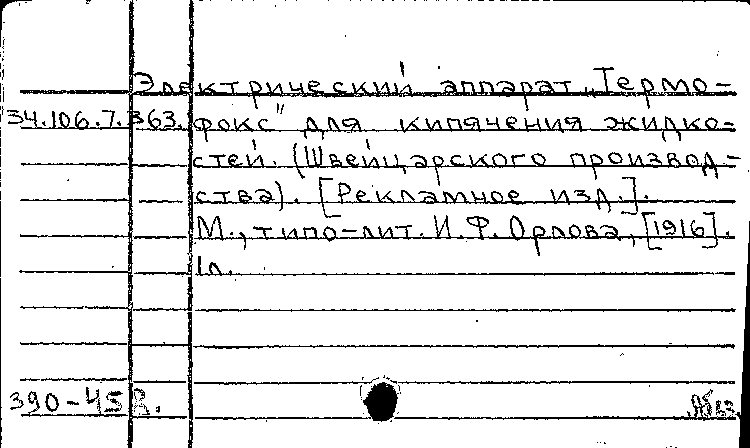 Электрический аппарат „Термо-
34.106.7.363. фокс" для кипячения жидко-
стей. (Швейцарского производ-
ства). [Рекламное изд.].
М., типо-лит. И. Ф. Орлова, [1916].
1л.
390-45